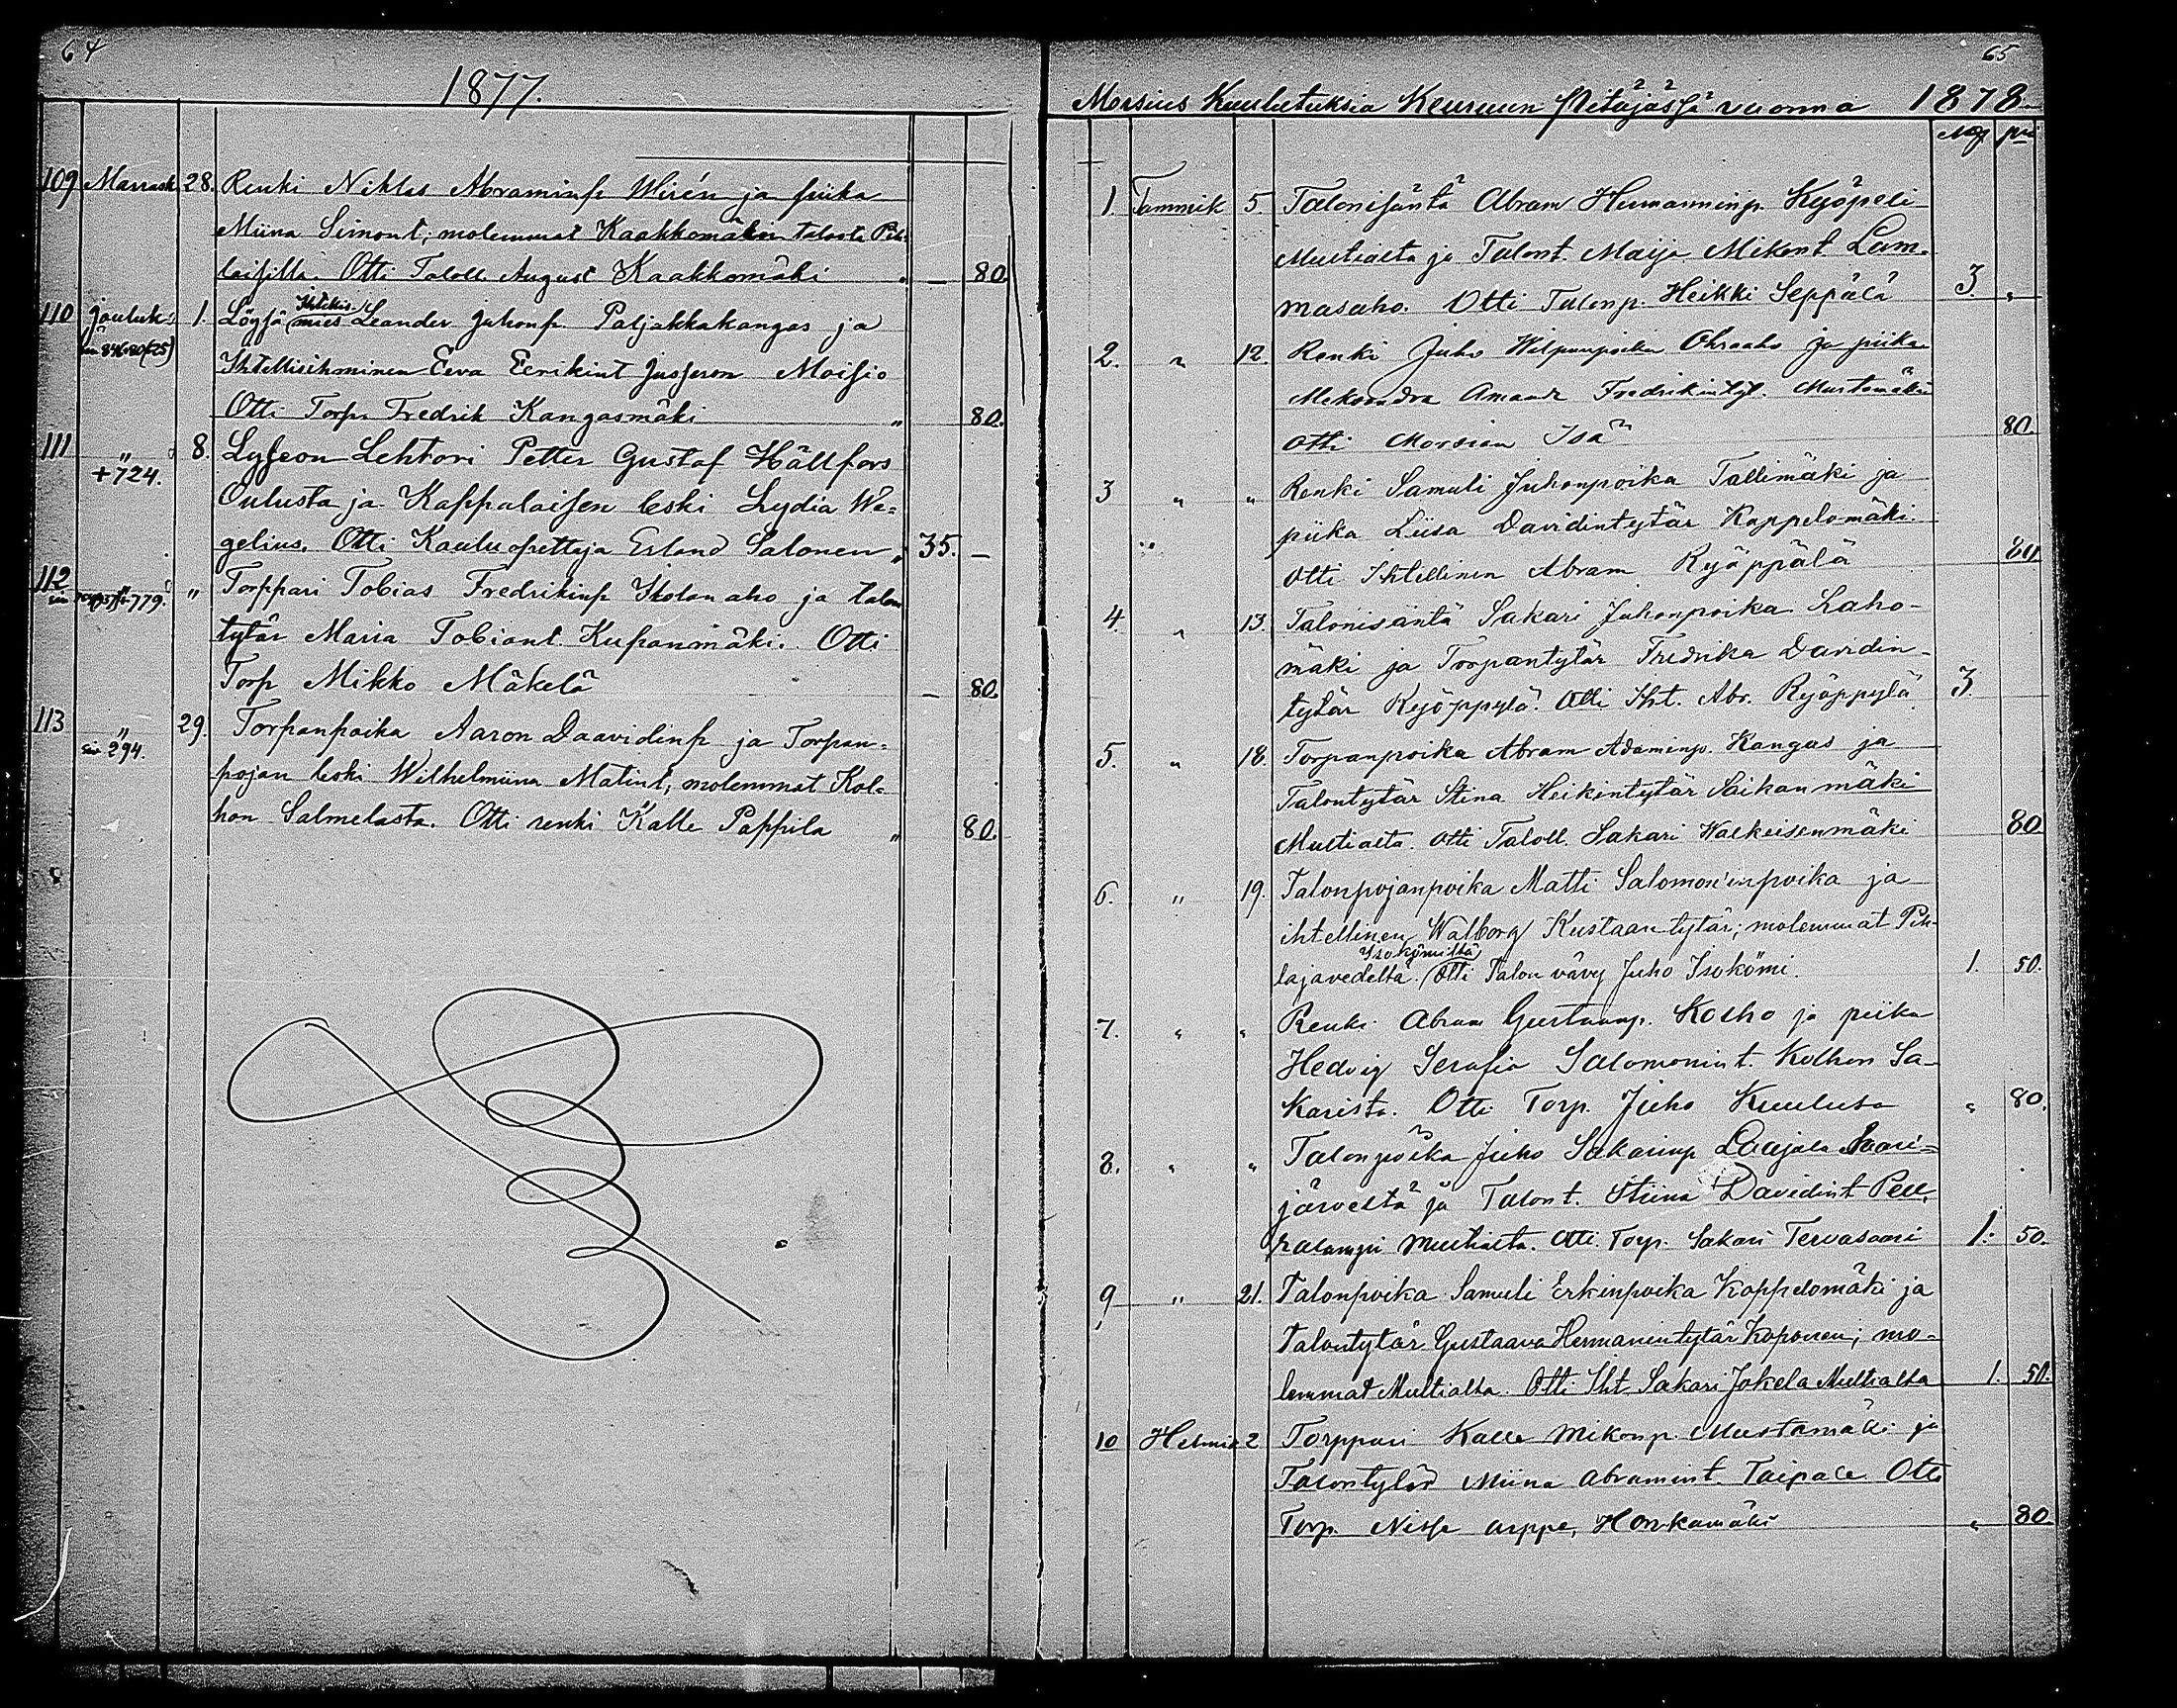 64
1877.
109 Marrask 28. Renki Niklas Abraminp Wirén ja piika
Miina Simont; molemmat Kaakkomäen talosta Pih-
laisilla. Otti Taloll. August Kaakkomäki " — 80.
110 jouluk: 1. Löysä mies Leander Juhonp. Paljakkakangas ja
Ihtellisihminen Eeva Eerikint Jusseron Moisio
Otti Torp. Fredrik Kangasmäki " 80.
111 " 8. Lyseon Lehtori Petter Gustaf Hällfors
+724.
Oulusta ja Kappalaisen leski Lydia We-
gelius. Otti Kouluopettaja Erland Salonen " 35. —
112 779. " Torppari Tobias Fredrikinp Skolanaho ja talon
tytär Maria Tobiant Kupanmäki. Otti
Torp Mikko Mäkelä — 80.
113 " 29. Torpanpoika Aaron Daavidinp ja Torpan-
294.
pojan leski Wilhelmiina Matint, molemmat Kol-
hon Salmelasta. Otti renki Kalle Pappila " 80.
65
Morsius Kuulutuksia Keuruun Pitäjässä vuonna 1878
Mg pni
1. Tammik 5. Talonisäntä Abram Hermanninp. Kyöpeli
Multialta ja Talont. Maija Mikont. Lam-
masaho. Otti Talonp. Heikki Seppälä 3. "
2. " 12. Renki Juho Wilponpoika Ohraaho ja piika
Aleksandra Amand Fredrikintyt. Mustamäki
Otti Morsian Isä 80.
3 " " Renki Samuli Juhonpoika Tallimäki ja
piika Liisa Davidintytär Koppelomäki.
Otti Ihtellinen Abram Ryöppälä 80.
4. " 13. Talonisäntä Sakari Juhonpoika Laho-
mäki ja Torpantytär Fredrika Davidin-
tytär Ryöppylä. Otti Iht. Abr. Ryöppylä 3
5. " 18. Torpanpoika Abram Adaminp. Kangas ja
Talontytär Stina Heikintytär Saikanmäki
Multialta. Otti Taloll. Sakari Walkeisenmäki 80
6. " 19. Talonpojanpoika Matti Salomoninpoika ja
ihtellinen Walborg Kustaantytär; molemmat Pih-
Isokömiltä
lajavedeltä. Otti Talon vävy Juho Isokömi. 1. 50.
7. " " Renki Abram Gustaanp. Kolho ja piika
Hedvig Serafia Salomonint. Kolhon Sa-
karista. Otti Torp. Juho Kuulusa " 80.
8. " " Talonpoika Juho Sakarinp Laajala Saari-
järveltä ja Talont. Stiina Davidint Pell.
ralampi Multialta. Otti Torp. Sakari Tervasaari 1. 50.
9 " 21. Talonpoika Samuli Erkinpoika Koppelomäki ja
Talontytär Gustaava Hermanintytär Koponen; mo-
lemmat Multialta. Otti Iht Sakari Jokela Multialta 1. 50.
10 Helmik 2 Torppari Kalle Mikonp. Mustamäki ja
Talontytär Miina Abramint. Taipale Otti
Torp. Nisse Arppe, Honkamäki " 80